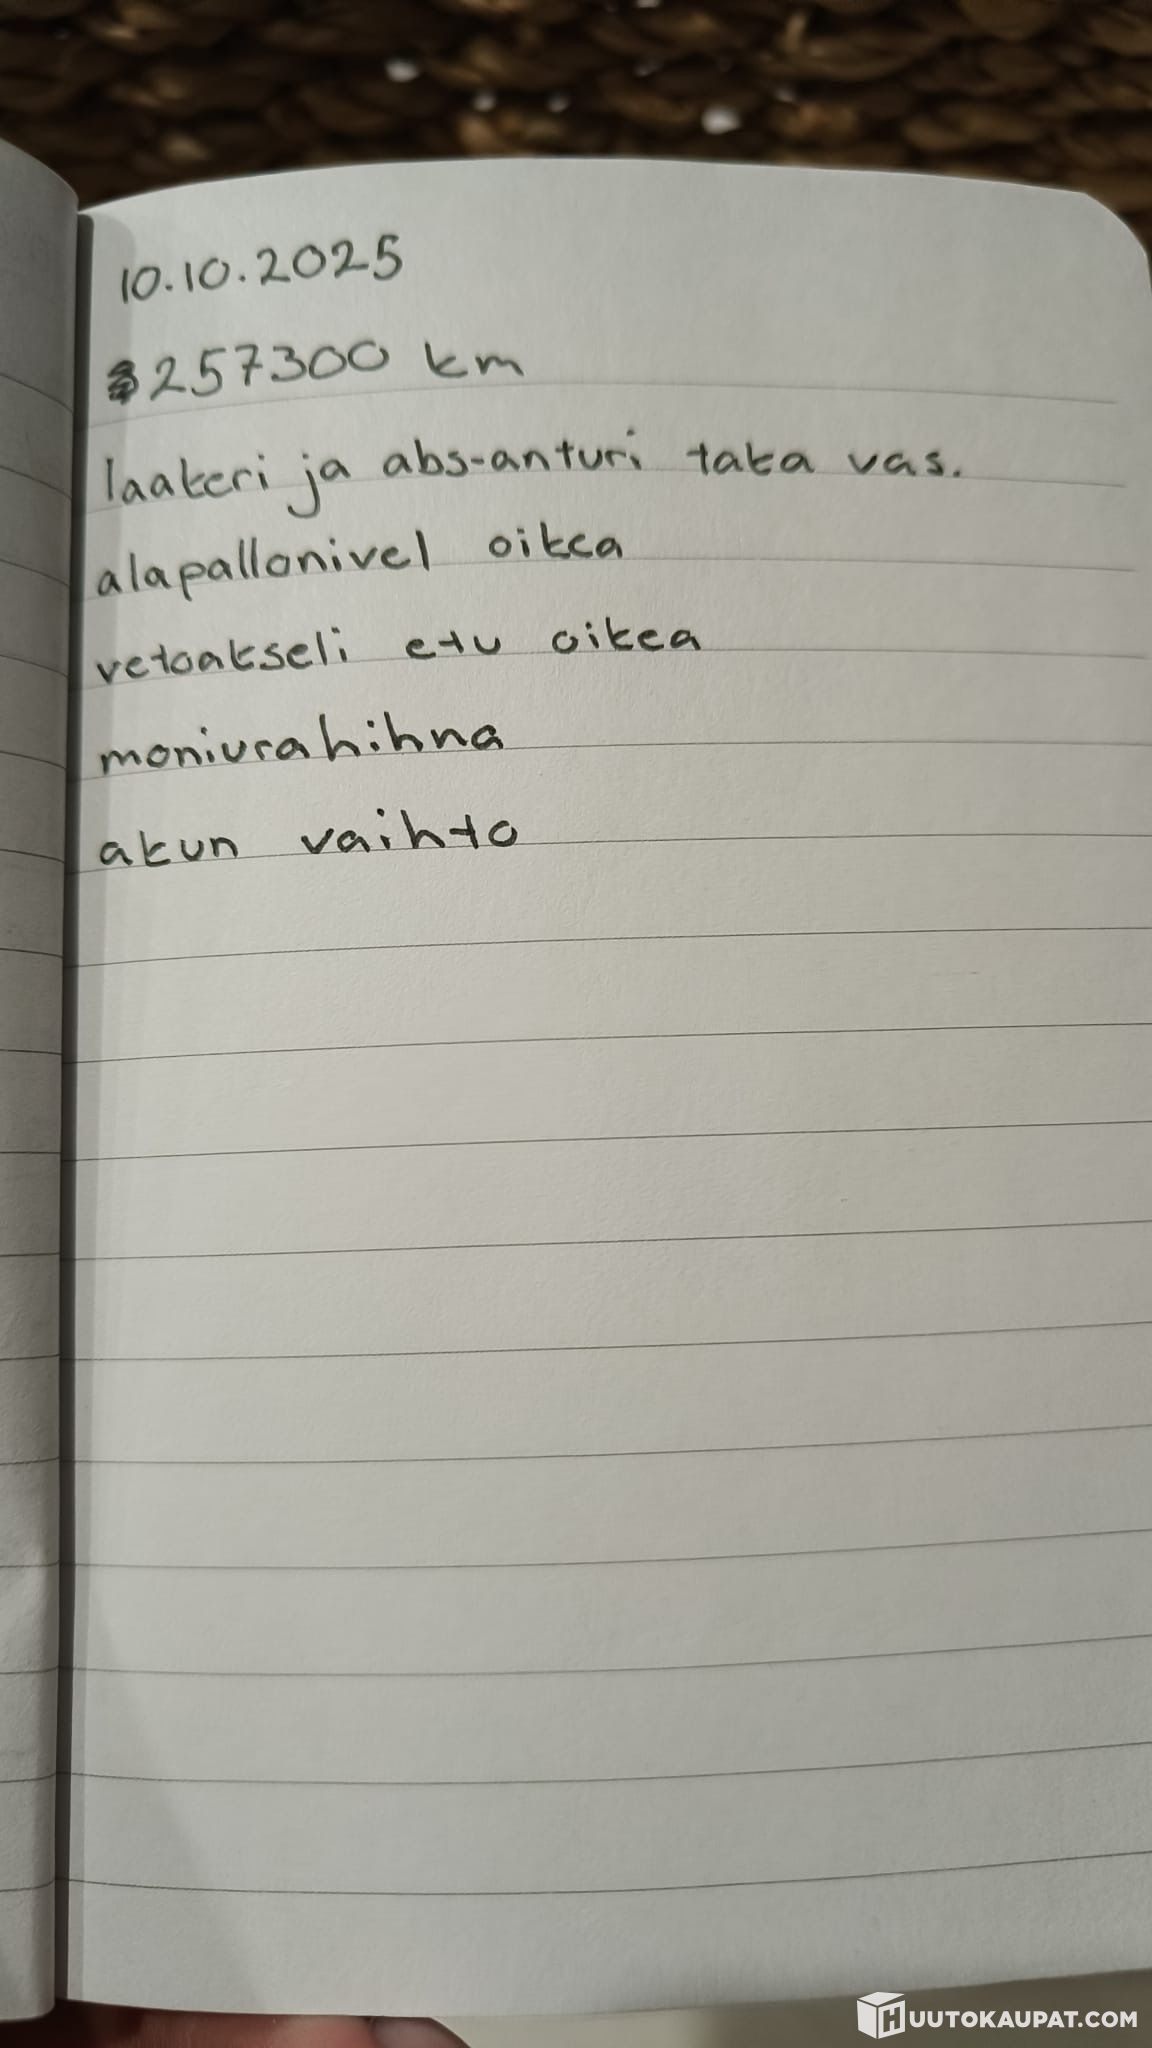 10.10.2025
257300 km
laakeri ja abs-anturi taka vas.
alapallonivel oikea
vetoakseli etu oikea
moniurahihna
akun vaihto
HUUTOKAUPAT.COM